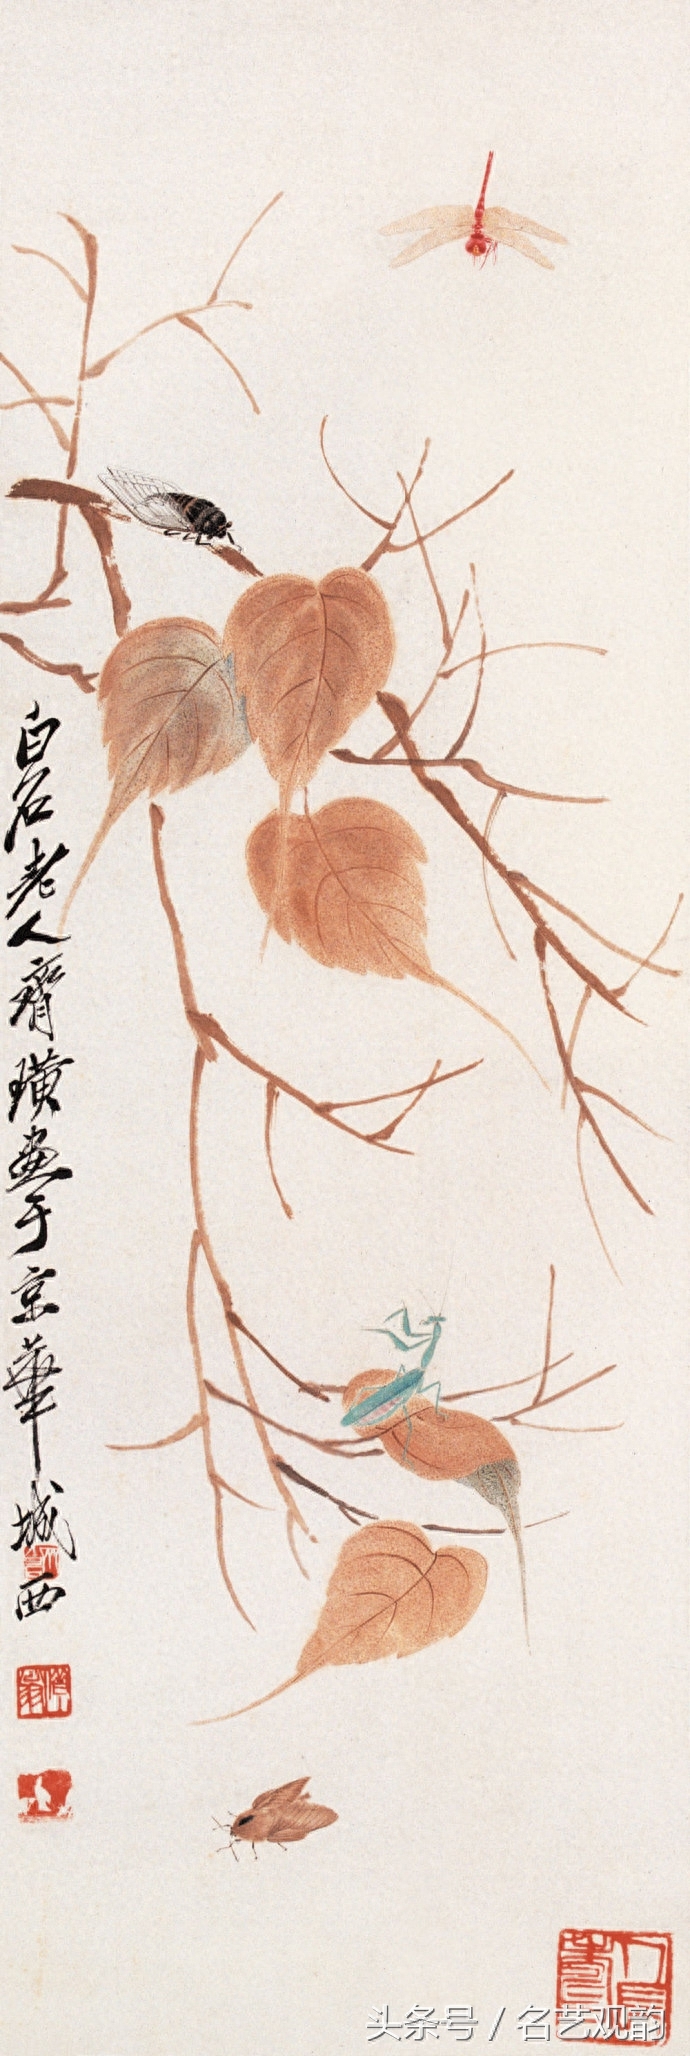 白石老人齊璜画于京華城西
头条号 / 名艺观韵